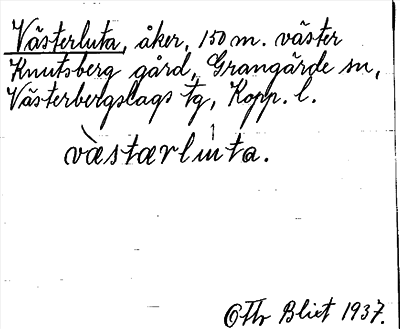 Västerluta, åker, 150 m. väster
Knutsberg gård, Grangärde sn,
Västerbergslags tg, Kopp. l.
västærluta.
Otto Blixt 1937.